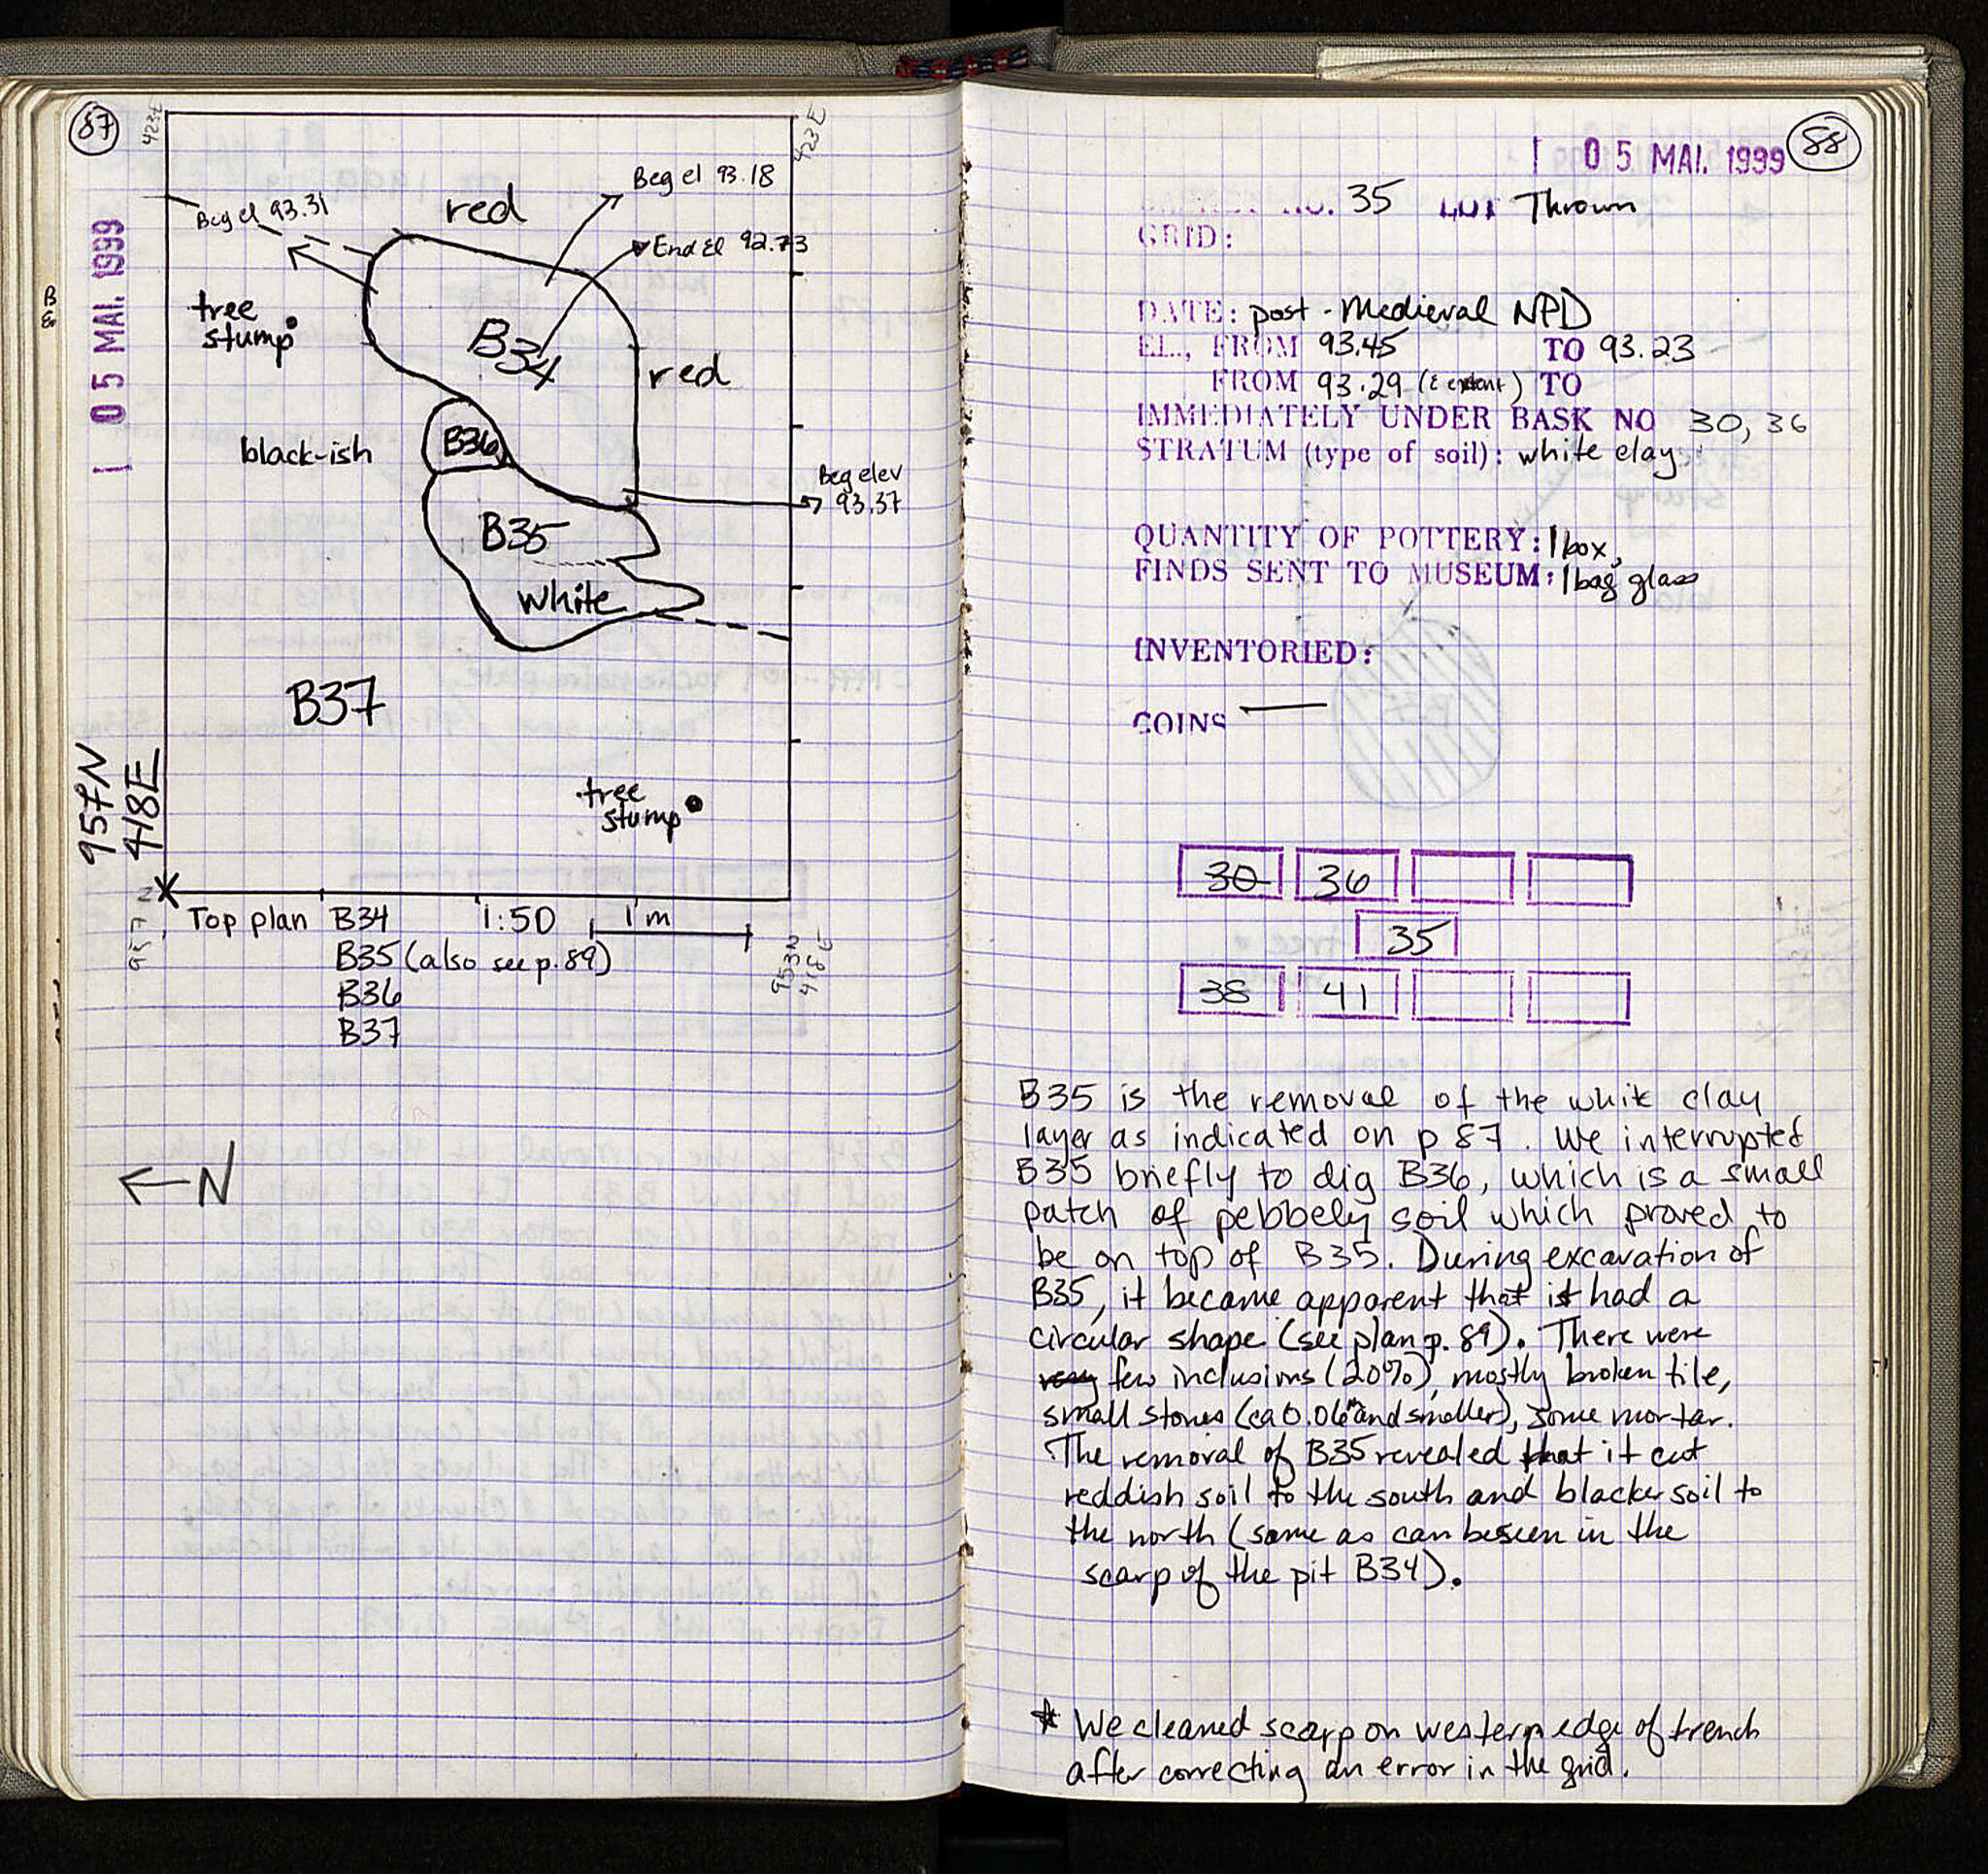 87
423E
423E
05 MAI. 1999
Beg el 93.18
Beg el 93.31
red
End El 92.73
tree
stump
B34
red
black-ish
B36
Beg elev
93.37
B35
white
B37
957N
418E
tree
stump
957N
Top plan B34 1:50 1 m
B35 (also see p. 89)
B36
B37
953N
418E
←N
88
05 MAI. 1999
NO. 35 LOT Thrown
GRID:
DATE: post-Medieval NPD
EL., FROM 93.45 TO 93.23
FROM 93.29 TO
IMMEDIATELY UNDER BASK NO 30, 36
STRATUM (type of soil): white clay
QUANTITY OF POTTERY: 1 box,
FINDS SENT TO MUSEUM: 1 bag glass
INVENTORIED:
COINS —
30 36
35
38 41
B35 is the removal of the white clay
layer as indicated on p 87. We interrupted
B35 briefly to dig B36, which is a small
patch of pebbely soil which proved to
be on top of B35. During excavation of
B35, it became apparent that it had a
circular shape (see plan p. 89). There were
very few inclusions (20%), mostly broken tile,
small stones (ca 0.06m and smaller), some mortar.
The removal of B35 revealed that it cut
reddish soil to the south and blacker soil to
the north (same as can be seen in the
scarp of the pit B34).
* We cleaned scarp on western edge of trench
after correcting an error in the grid.